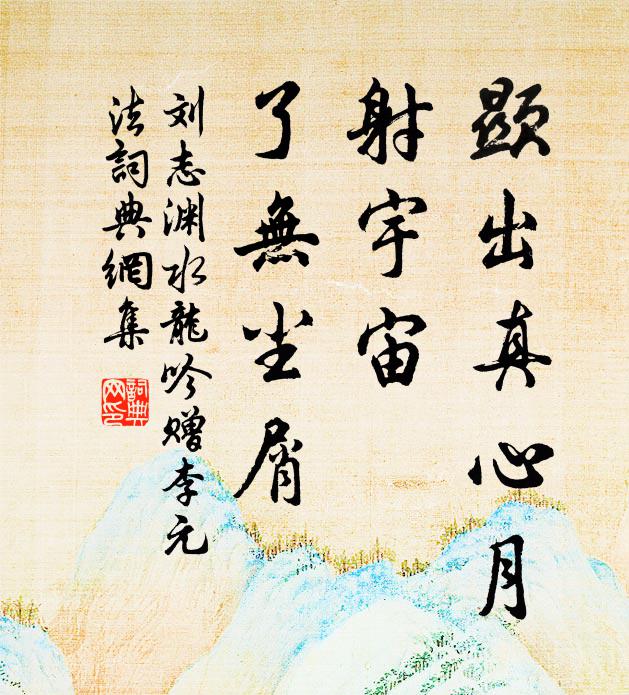 顯出真心月
射宇宙
了無尘屑
刘志渊水龍吟赠李元
法詞典網集
詞典
网印